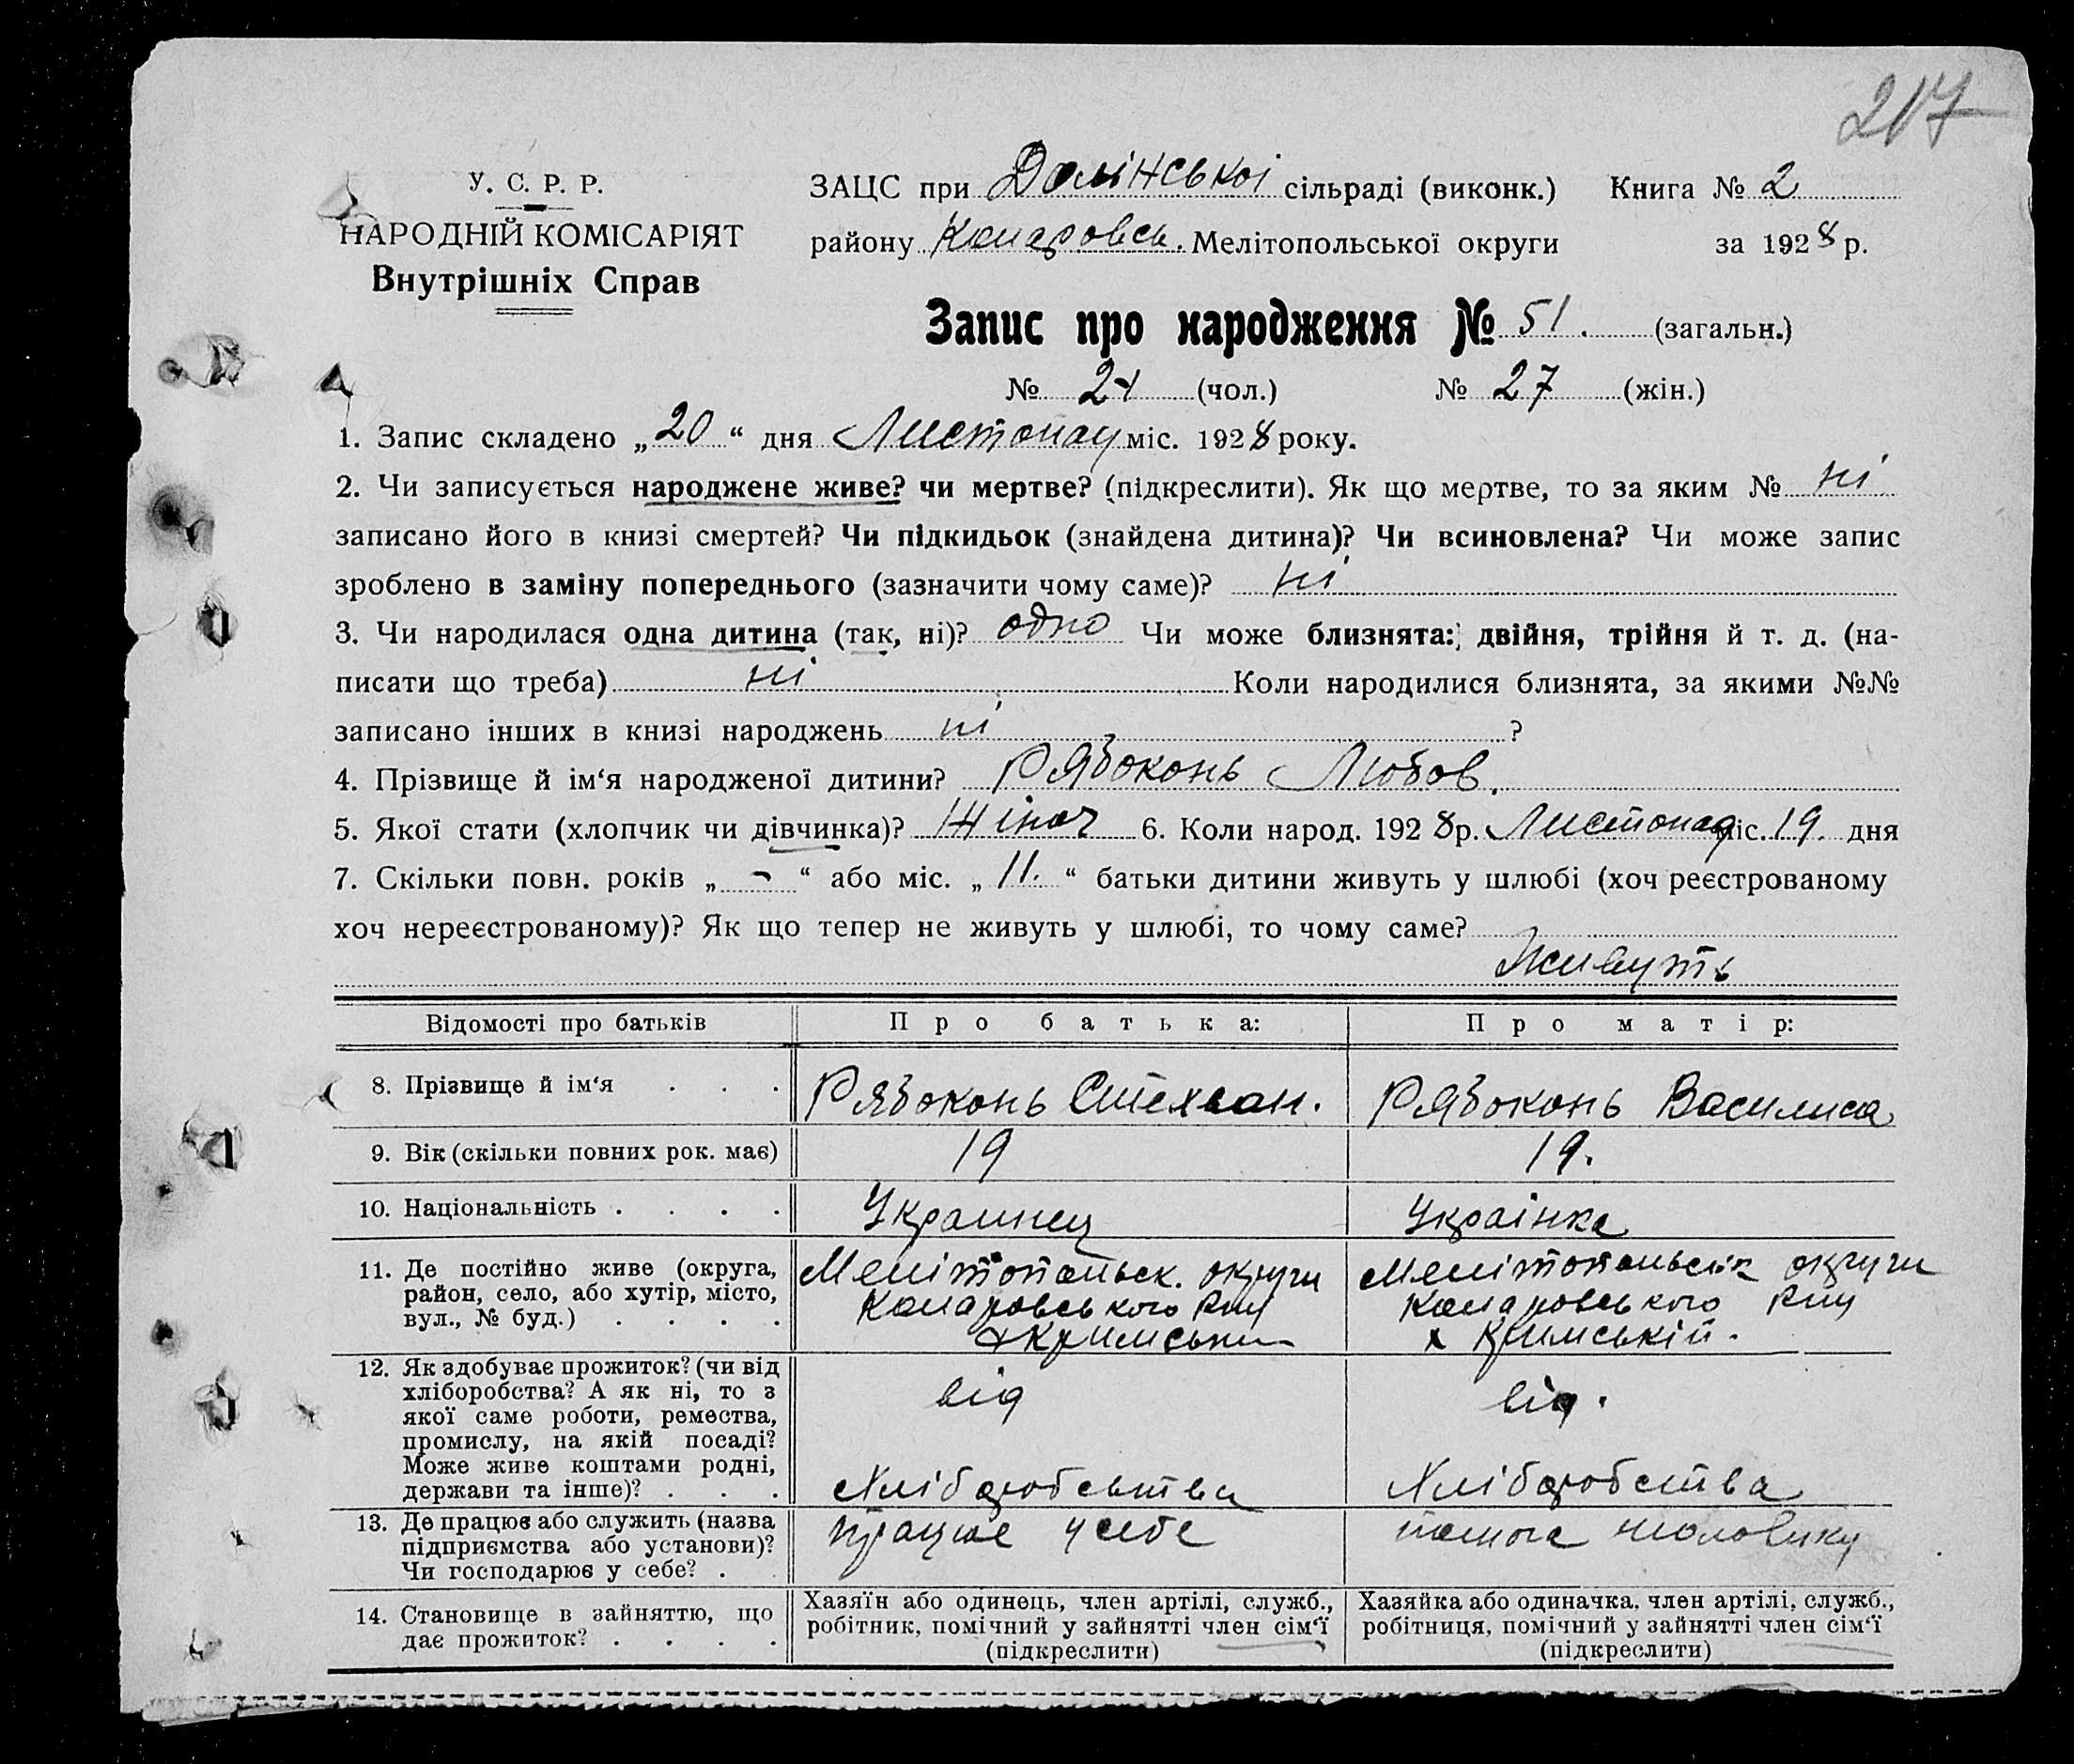 217
У. С. Р. Р.
НАРОДНІЙ КОМІСАРІЯТ
Внутрішніх Справ
ЗАЦС при Долінської сільраді (виконк.) Книга № 2
району Комаровськ. Мелітопольської округи за 1928 р.
Запис про народження № 51. (загальн.)
№ 24 (чол.) № 27 (жін.)
1. Запис складено „20“ дня Листопад міс. 1928 року.
2. Чи записується народжене живе? чи мертве? (підкреслити). Як що мертве, то за яким № ні
записано його в книзі смертей? Чи підкидьок (знайдена дитина)? Чи всиновлена? Чи може запис
зроблено в заміну попереднього (зазначити чому саме)? ні
3. Чи народилася одна дитина (так, ні)? одно Чи може близнята: двійня, трійня й т. д. (на-
писати що треба) ні Коли народилися близнята, за якими №№
записано інших в книзі народжень ні ?
4. Прізвище й ім‘я народженої дитини? Рябоконь Любов.
5. Якої стати (хлопчик чи дівчинка)? Жіноч 6. Коли народ. 1928 р. Листопад міс. 19. дня
7. Скільки повн. років „ - “ або міс. „ 11. “ батьки дитини живуть у шлюбі (хоч реєстрованому
хоч нереєстрованому)? Як що тепер не живуть у шлюбі, то чому саме?
Живуть
Відомості про батьків Про батька: Про матір:
8. Прізвище й ім‘я . . . Рябоконь Степан. Рябоконь Василиса
9. Вік (скільки повних рок. має) 19 19.
10. Національність . . . . Украинец Українка
11. Де постійно живе (округа, Мелітопольск. округи Мелітопольськ округи
район, село, або хутір, місто, Комаровського Рну Комаровського Рну
вул., № буд.) . . . . х Кримськи х Кримській.
12. Як здобуває прожиток? (чи від
хліборобства? А як ні, то з від від.
якої саме роботи, ремества,
промислу, на якій посаді?
Може живе коштами родні,
держави та інше)? . . . Хліборобства Хліборобства
13. Де працює або служить (назва працює у себе помога чоловику
підприємства або установи)?
Чи господарює у себе? .
14. Становище в зайняттю, що Хазяїн або одинець, член артілі, служб., Хазяйка або одиначка, член артілі, служб.,
дає прожиток? . . . . робітник, помічний у зайнятті член сім‘ї робітниця, помічний у зайнятті член сім‘ї
(підкреслити) (підкреслити)